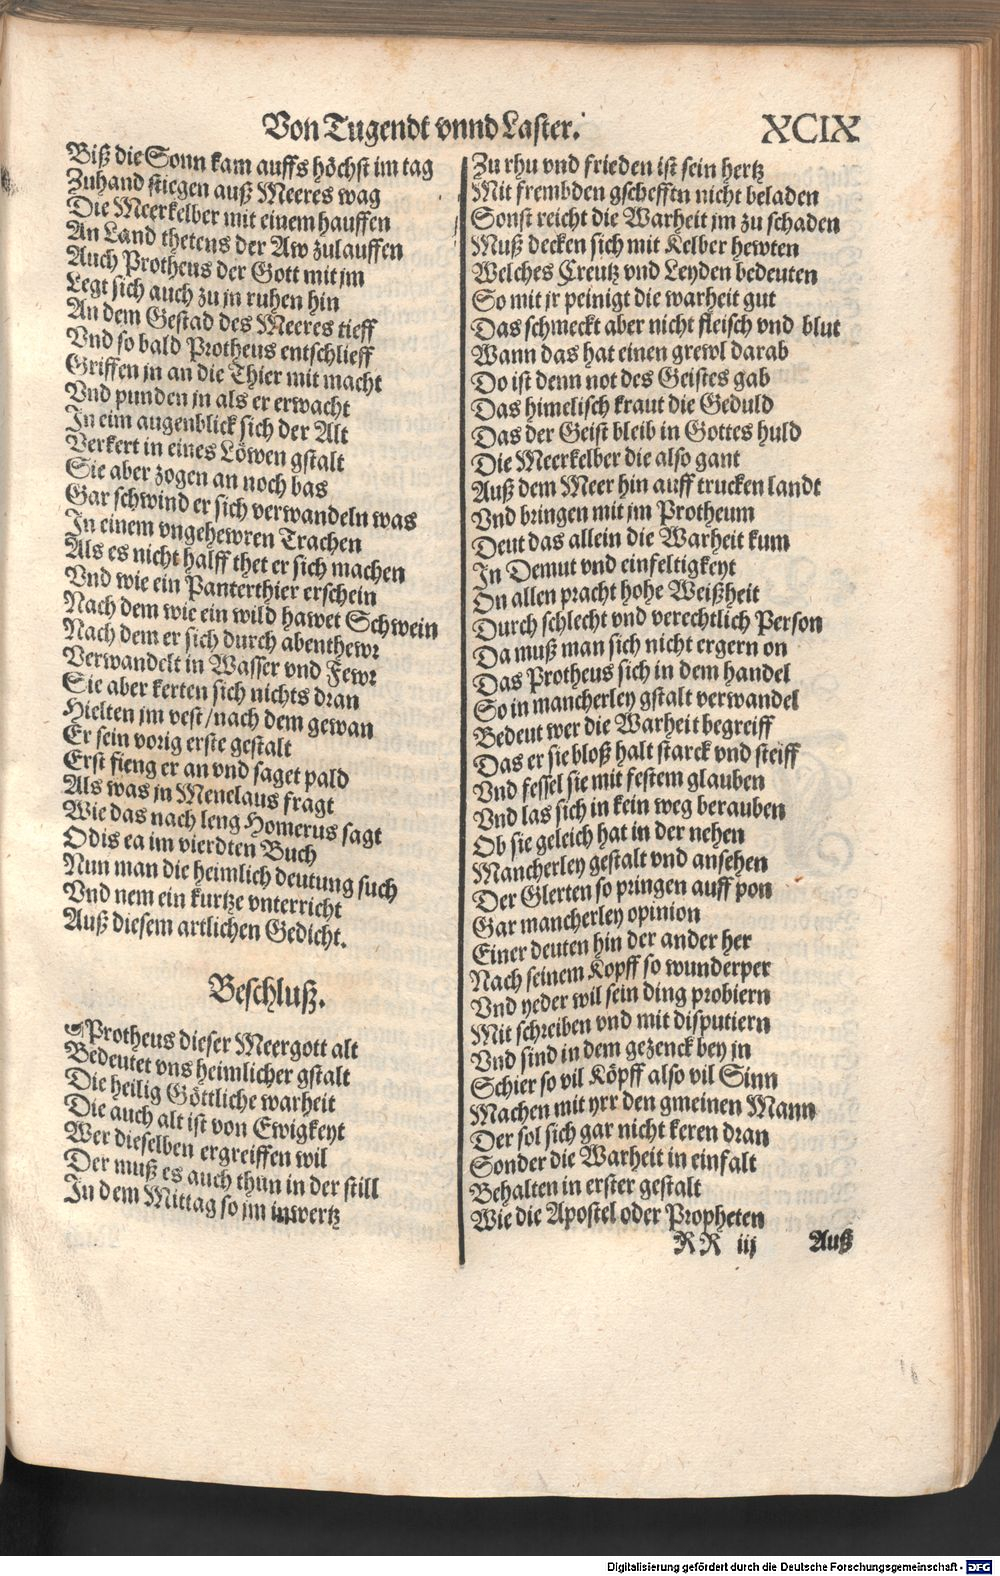 Von Tugendt vnnd Laster. XCIX
Biß die Sonn kam auffs höchst im tag
Zuhand stiegen auß Meeres wag
Die Meerkelber mit einem hauffen
An Land thetens der Aw zulauffen
Auch Protheus der Gott mit jm
Legt sich auch zu jn ruhen hin
An dem Gestad des Meeres tieff
Vnd so bald Protheus entschlieff
Griffen jn an die Thier mit macht
Vnd punden jn als er erwacht
In eim augenblick sich der Alt
Verkert in eines Löwen gstalt
Sie aber zogen an noch bas
Gar schwind er sich verwandeln was
In einem vngehewren Trachen
Als es nicht halff thet er sich machen
Vnd wie ein Panterthier erschein
Nach dem wie ein wild hawet Schwein
Nach dem er sich durch abenthewr
Verwandelt in Wasser vnd Fewr
Sie aber kerten sich nichts dran
Hielten jm vest/nach dem gewan
Er sein vorig erste gestalt
Erst fieng er an vnd saget pald
Als was jn Menelaus fragt
Wie das nach leng Homerus sagt
Odis ea im vierdten Buch
Nun man die heimlich deutung such
Vnd nem ein kurtze vnterricht
Auß diesem artlichen Gedicht.
Beschluß.
Protheus dieser Meergott alt
Bedeutet vns heimlicher gstalt
Die heilig Göttliche warheit
Die auch alt ist von Ewigkeyt
Wer dieselben ergreiffen wil
Der muß es auch thun in der still
In dem Mittag so im inwertz
Zu rhu vnd frieden ist sein hertz
Mit frembden gschefftn nicht beladen
Sonst reicht die Warheit jm zu schaden
Muß decken sich mit Kelber hewten
Welches Creutz vnd Leyden bedeuten
So mit jr peinigt die warheit gut
Das schmeckt aber nicht fleisch vnd blut
Wann das hat einen grewl darab
Do ist denn not des Geistes gab
Das himelisch kraut die Geduld
Das der Geist bleib in Gottes huld
Die Meerkelber die also gant
Auß dem Meer hin auff trucken landt
Vnd bringen mit jm Protheum
Deut das allein die Warheit kum
In Demut vnd einfeltigkeyt
On allen pracht hohe Weißheit
Durch schlecht vnd verechtlich Person
Da muß man sich nicht ergern on
Das Protheus sich in dem handel
So in mancherley gstalt verwandel
Bedeut wer die Warheit begreiff
Das er sie bloß halt starck vnd steiff
Vnd fessel sie mit festem glauben
Vnd las sich in kein weg berauben
Ob sie geleich hat in der nehen
Mancherley gestalt vnd ansehen
Der Glerten so pringen auff pon
Gar mancherley opinion
Einer deuten hin der ander her
Nach seinem Kopff so wunderper
Vnd yeder wil sein ding probiern
Mit schreiben vnd mit disputiern
Vnd sind in dem gezenck bey jn
Schier so vil Köpff also vil Sinn
Machen mit yrr den gmeinen Mann
Der sol sich gar nicht keren dran
Sonder die Warheit in einfalt
Behalten in erster gestalt
Wie die Apostel oder Propheten
RR iij Auß
Digitalisierung gefördert durch die Deutsche Forschungsgemeinschaft - DFG